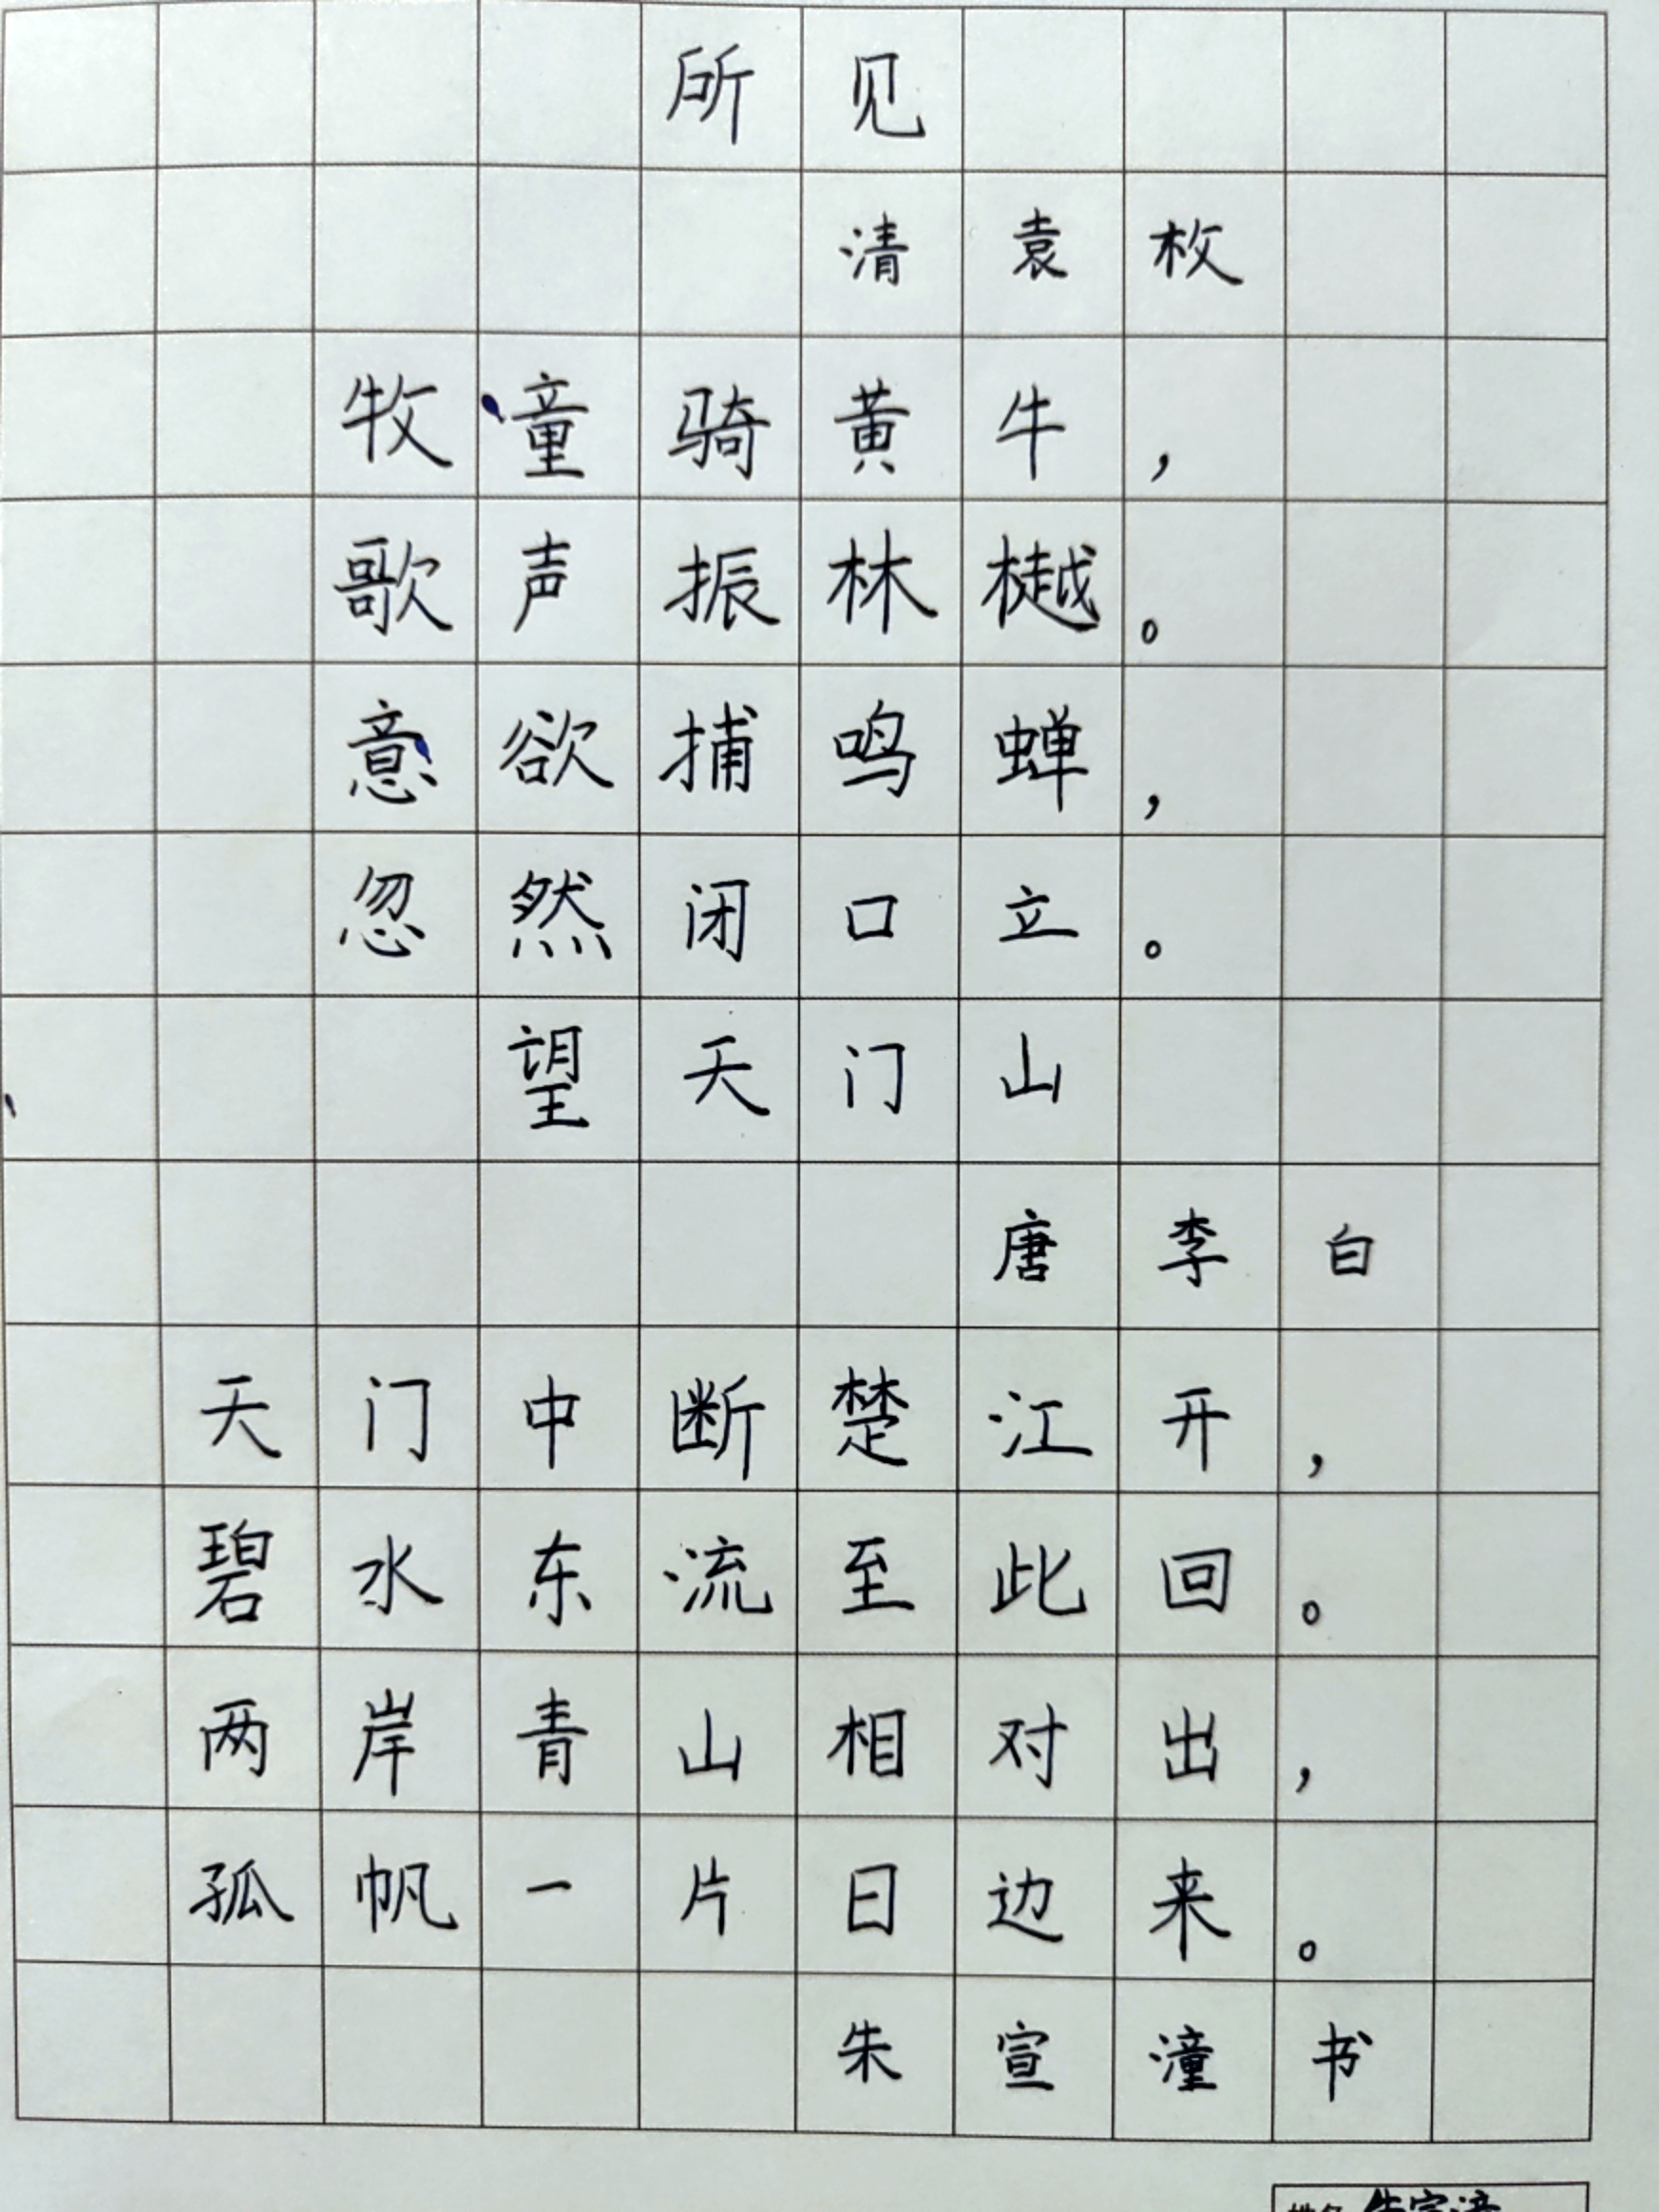 所见
清袁枚
牧童骑黄牛，
歌声振林樾。
意欲捕鸣蝉，
忽然闭口立。
望天门山
唐李白
天门中断楚江开，
碧水东流至此回。
两岸青山相对出，
孤帆一片日边来。
朱宣潼书